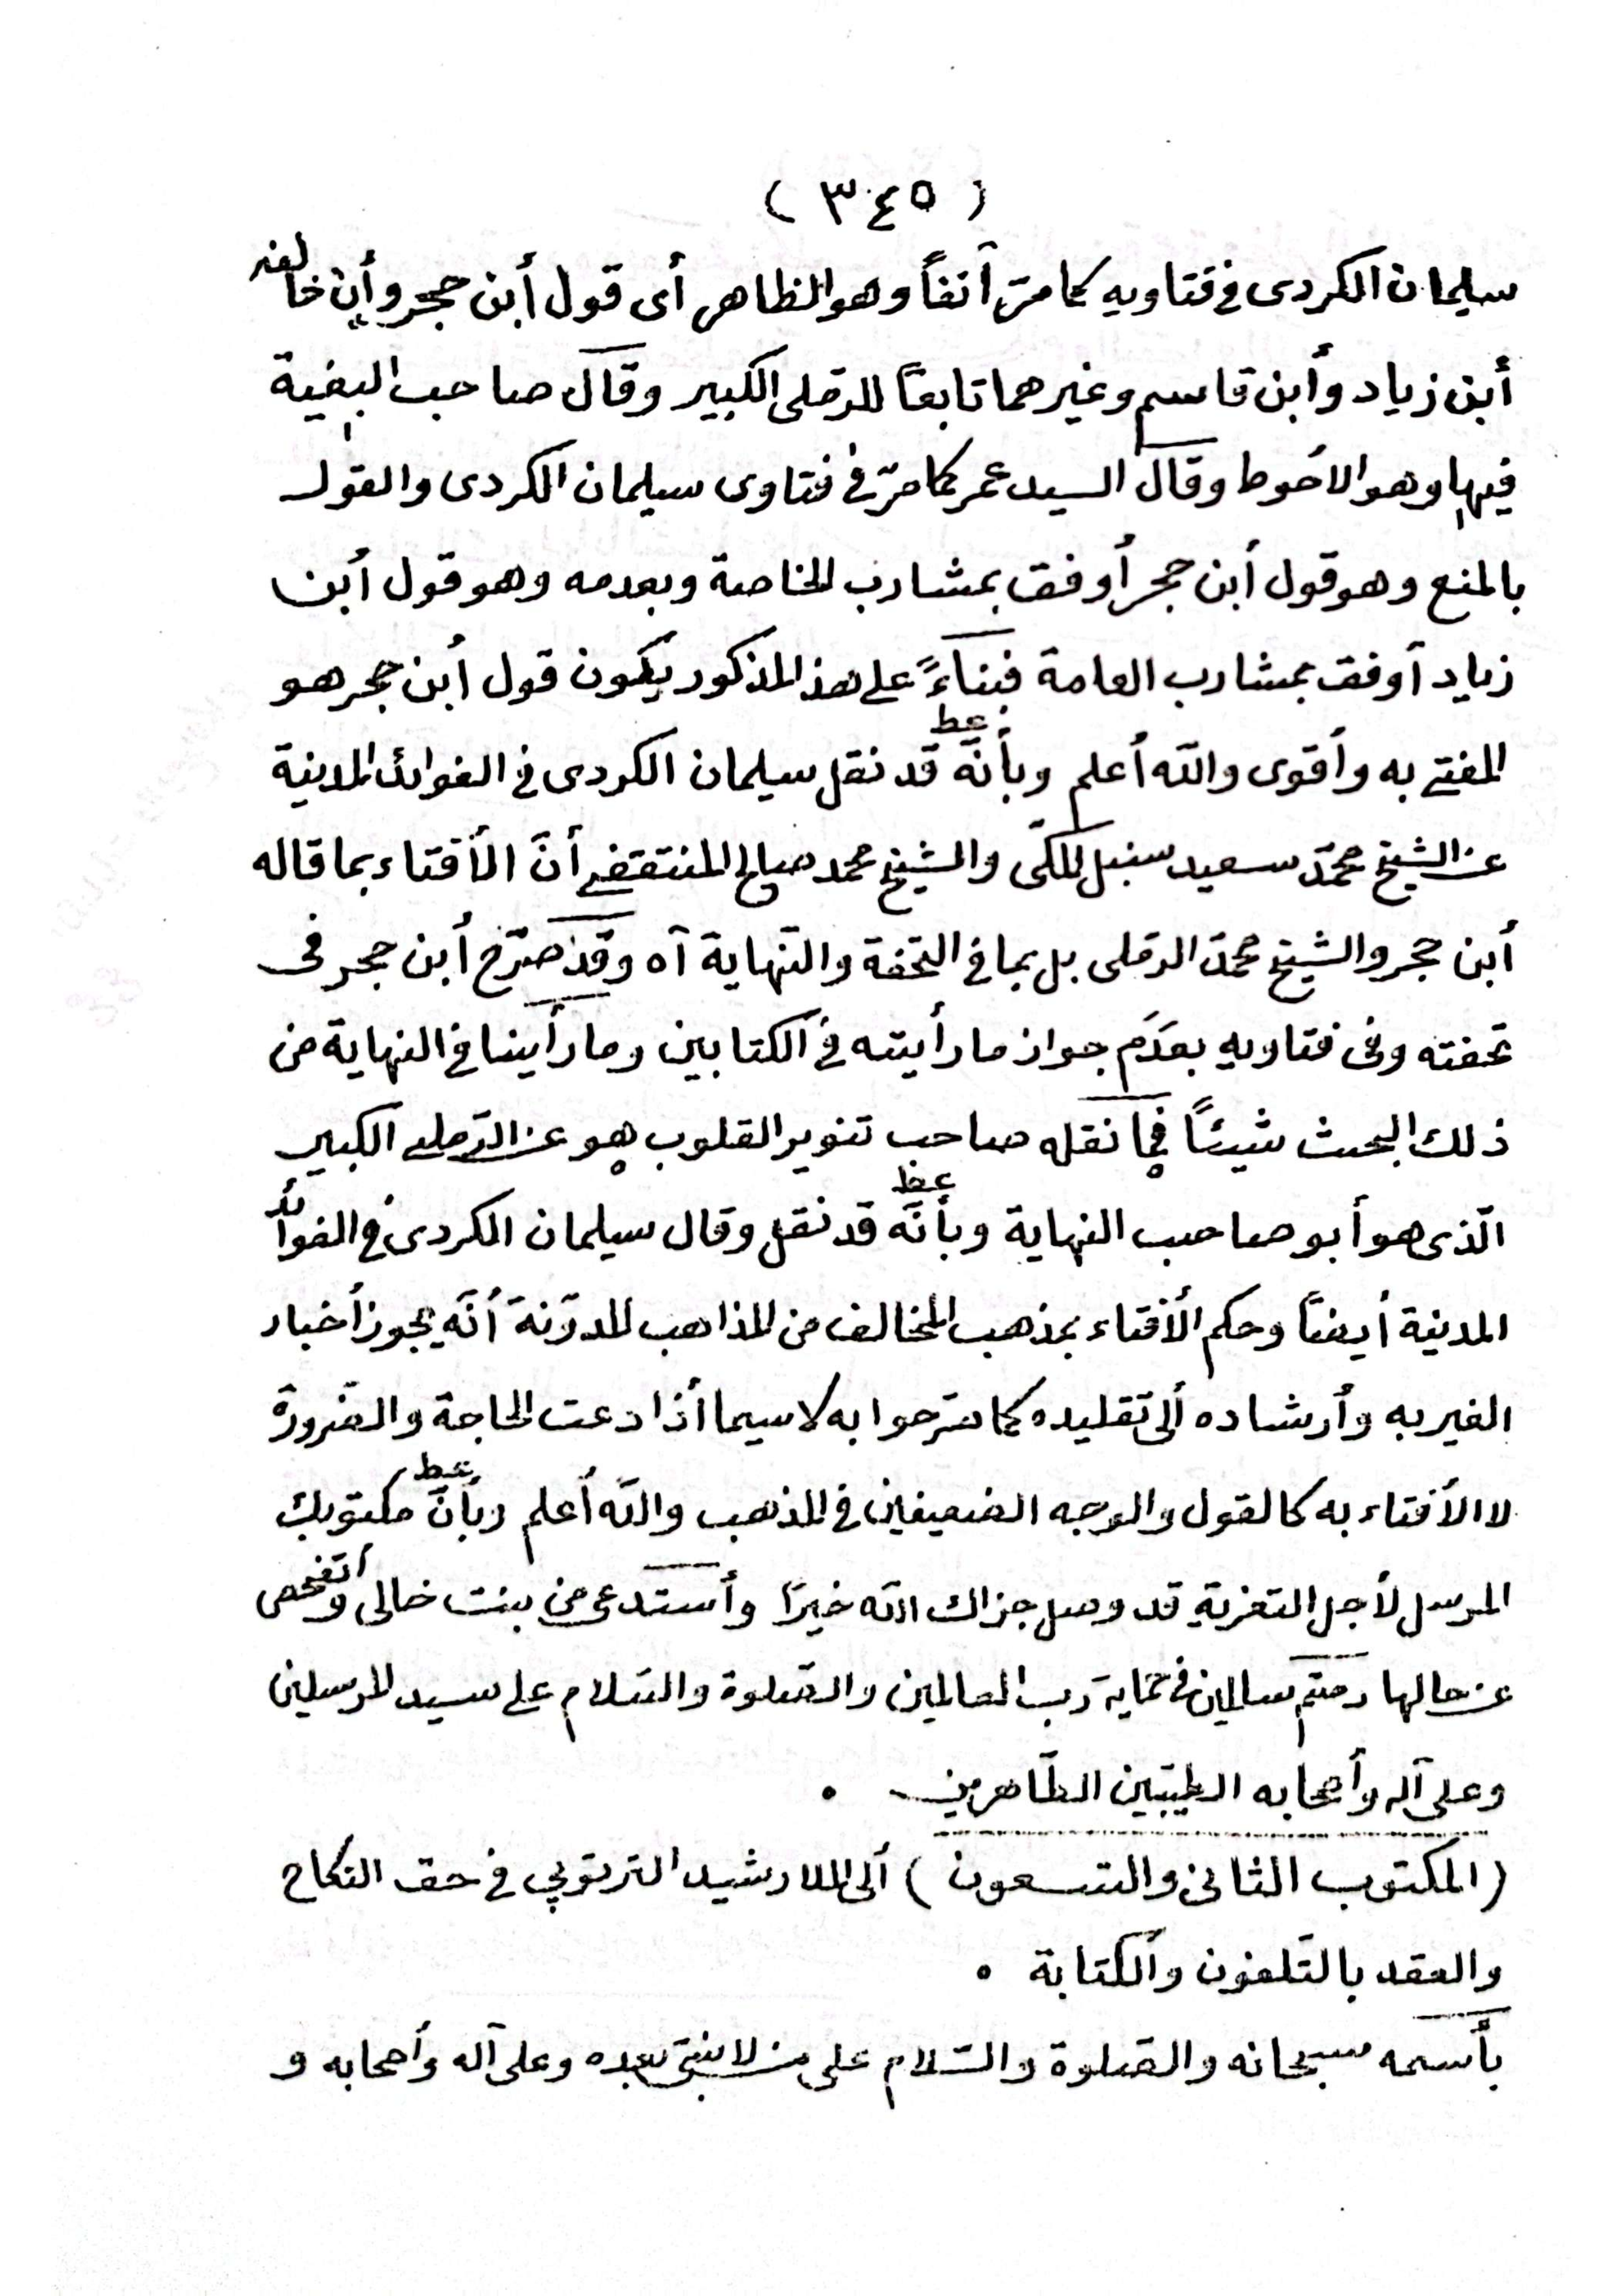 ( ٣٤٥ )
سليمان الكردى فى فتاويه كما مرّ آنفاً وهو الظاهر أى قول أبن حجر وأن خالفه
أبن زياد وأبن قاسم وغيرهما تابعاً للرملى الكبير وقال صاحب البغية
فيها وهو الاحوط وقال السيد عمر كما مرّ فى فتاوى سليمان الكردى والقول
بالمنع وهو قول أبن حجر أوفق بمشارب الخاصة وبعدمه وهو قول أبن
زياد أوفق بمشارب العامة فبناءً على هذ المذكور يكون قول أبن حجر هو
المفتى به وأقوى والله أعلم وبأنّه قد نقل سليمان الكردى فى الفوائد المدنية
عن الشيخ محمّد سعيد سنبل المكّى والشيخ محمد صالح المنتقفى أنّ الأفتاء بما قاله
أبن حجر والشيخ محمّد الرملى بل بما فى التحفة والنّهاية آه وقد صرّح أبن حجر فى
تحفته وفى فتاويه بعدم جواز ما رأيته فى الكتابين وما رأينا فى النهاية من
ذلك البحث شيئاً فما نقله صاحب تنوير القلوب هو عن الرّملى الكبير
الّذى هو أبو صاحب النهاية وبأنّه قد نقل وقال سليمان الكردى فى الفوائد
المدنية أيضاً وحكم الأفتاء بمذهب المخالف من المذاهب المدوّنة أنّه يجوز أخبار
الغير به وأرشاده ألى تقليده كما صرّحوا به لا سيما أذا دعت الحاجة والضّرورة
لا الأفتاء به كالقول والوجه الضعيفين فى المذهب والله أعلم وبأنّ مكتوبك
المرسل لأجل التعزية قد وصل جزاك الله خيرًا وأستدعى من بنت خالى وأتفحص
عن حالها دمتم سالمين فى حماية ربّ العالمين والصّلوة والسّلام على سيد المرسلين
وعلى آله وأصحابه الطيّبين الطّاهرين ٠
( المكتوب الثانى والتسعون ) ألى الملا رشيد التربتوپى فى حق النكاح
والعقد بالتّلفون والكتابة ٠
بأسمه سبحانه والصّلوة والسّلام على من لا نبىّ بعده وعلى آله وأصحابه و